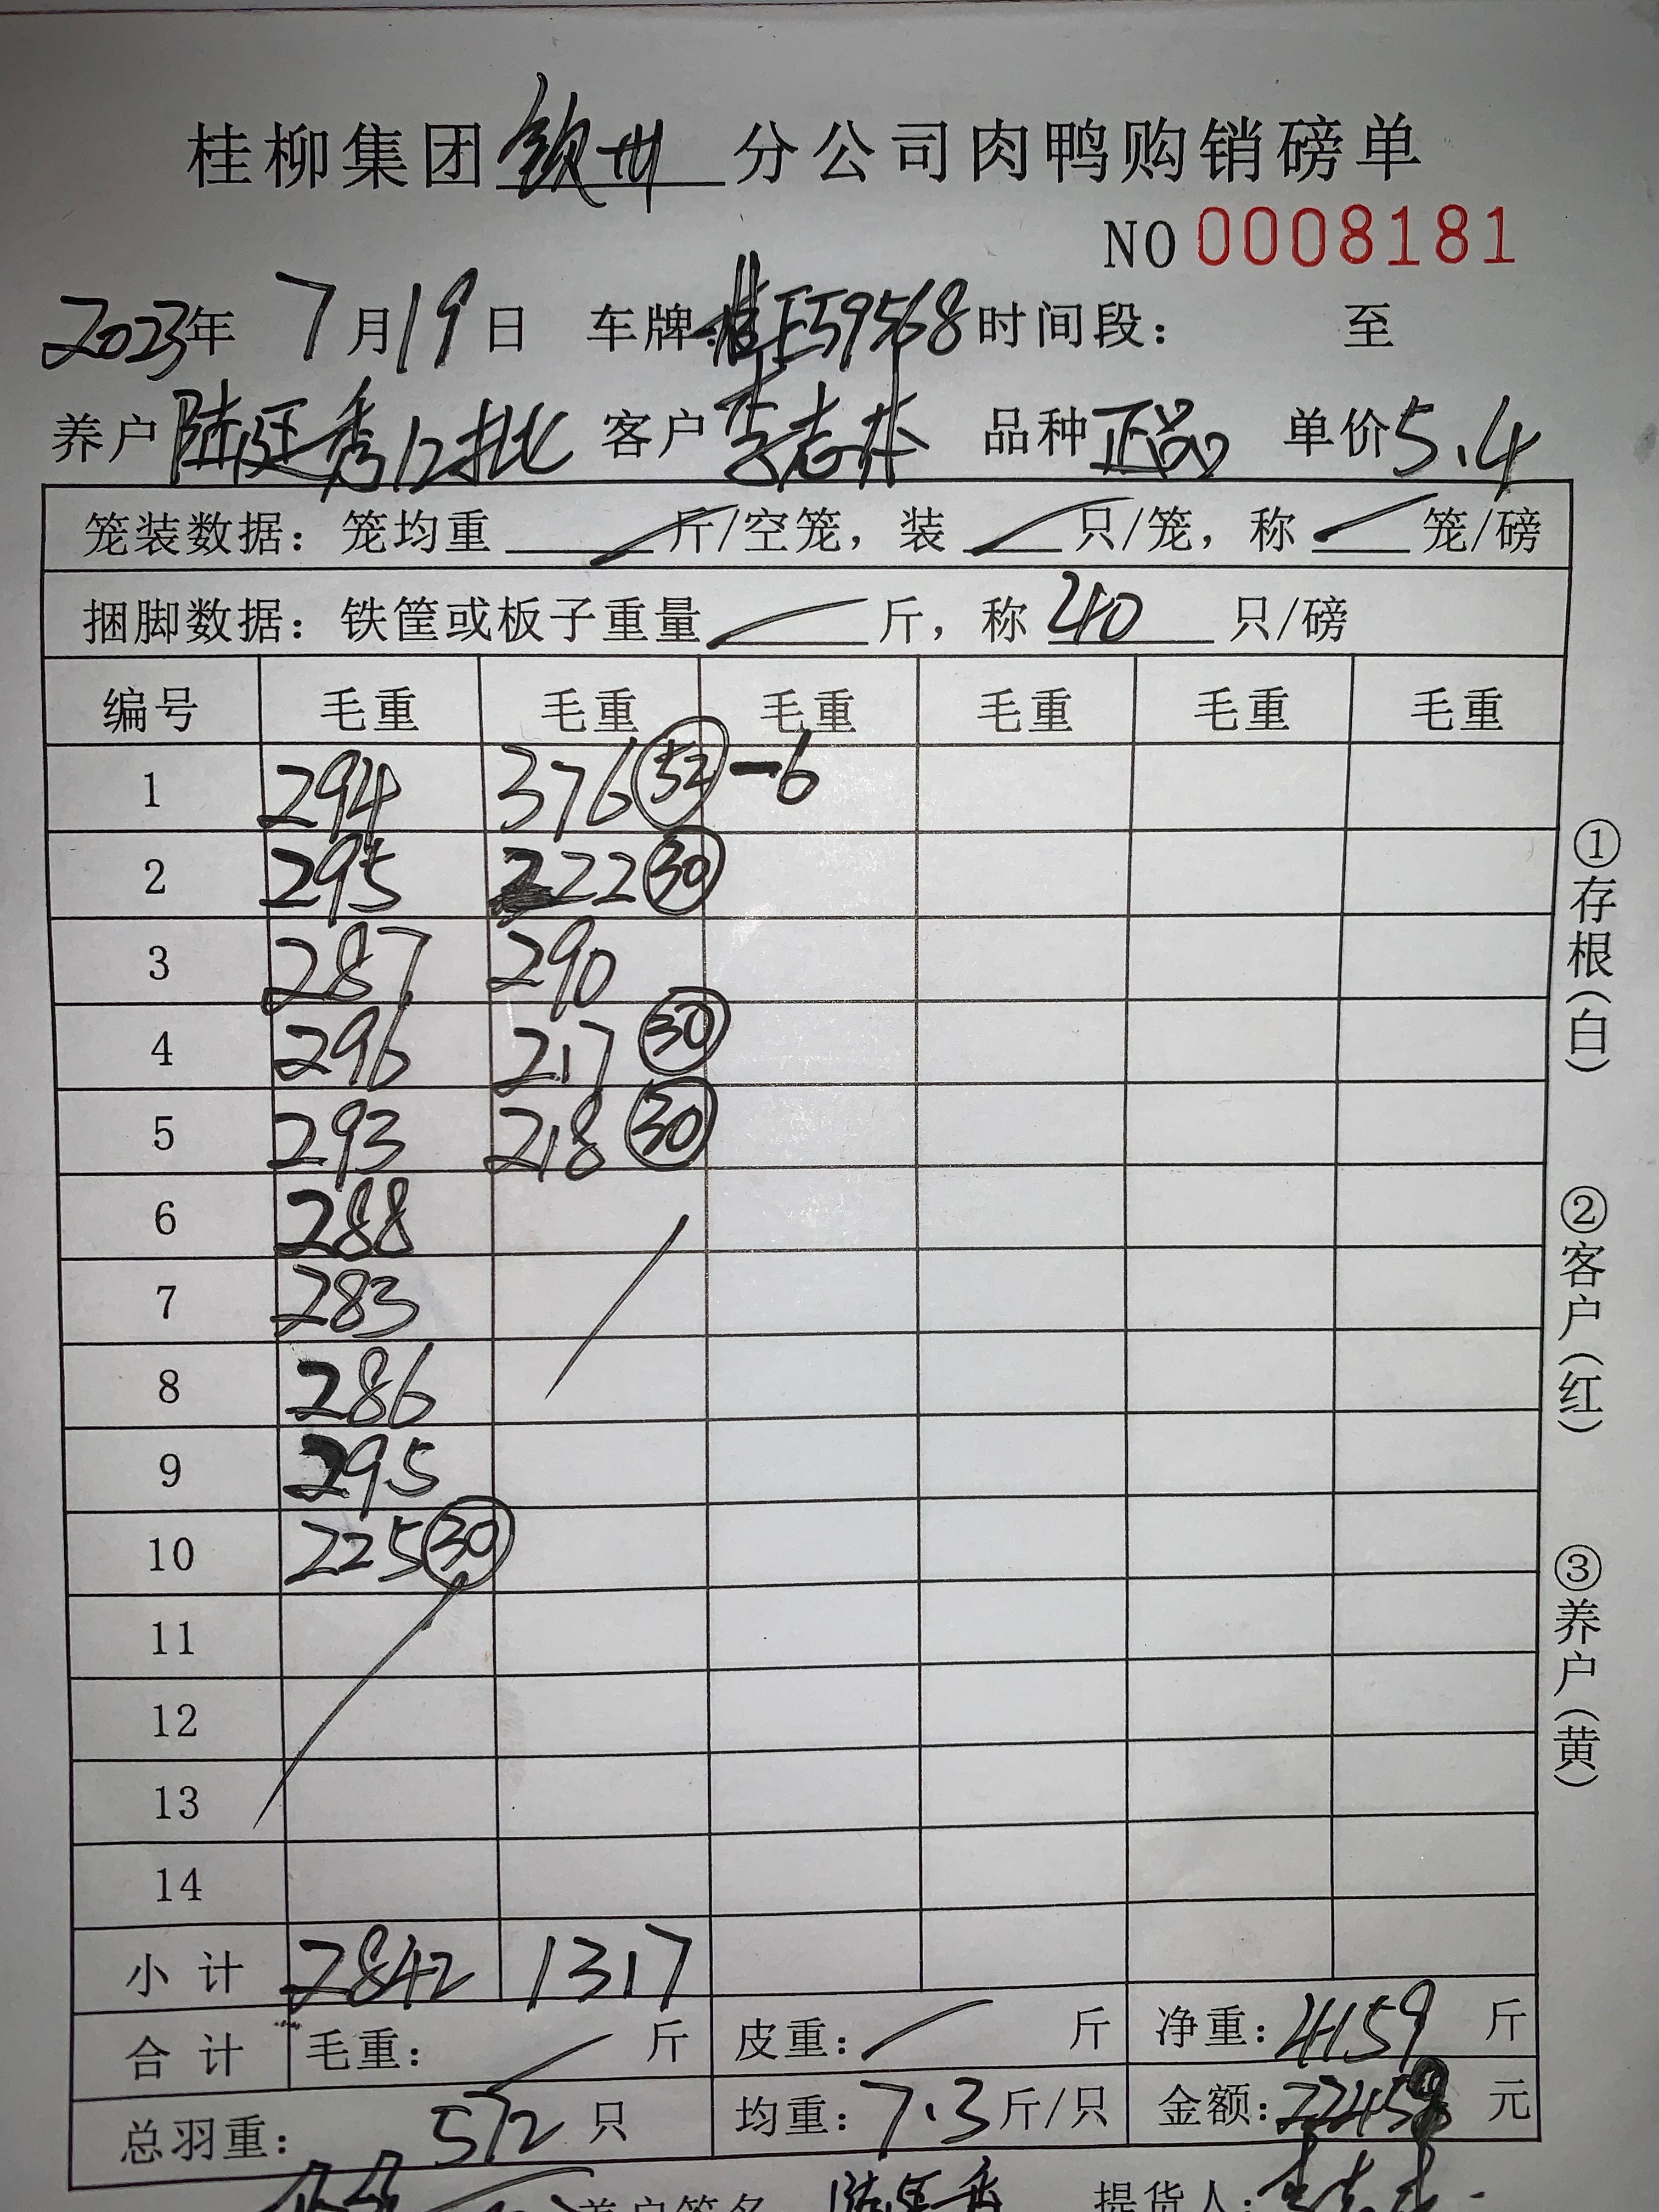 桂柳集团 钦州 分公司肉鸭购销磅单
NO 0008181
2023年 7月19日 车牌: 桂E59568 时间段: 至
养户 陆廷秀12批 客户 李志 品种 正品 单价 5.4
笼装数据: 笼均重 斤/空笼, 装 只/笼, 称 笼/磅
捆脚数据: 铁筐或板子重量 斤, 称 40 只/磅
编号 毛重 毛重 毛重 毛重 毛重 毛重
1 294 376 52 -6
2 295 222 30
3 287 290
4 296 217 30
5 293 218 30
6 288
7 283
8 286
9 295
10 225 30
11
12
13
14
小计 2842 1317
合计 毛重: 斤 皮重: 斤 净重: 4159 斤
总羽重: 572 只 均重: 7.3 斤/只 金额: 元
养户签名 陆廷秀 提货人:
①存根(白)
②客户(红)
③养户(黄)